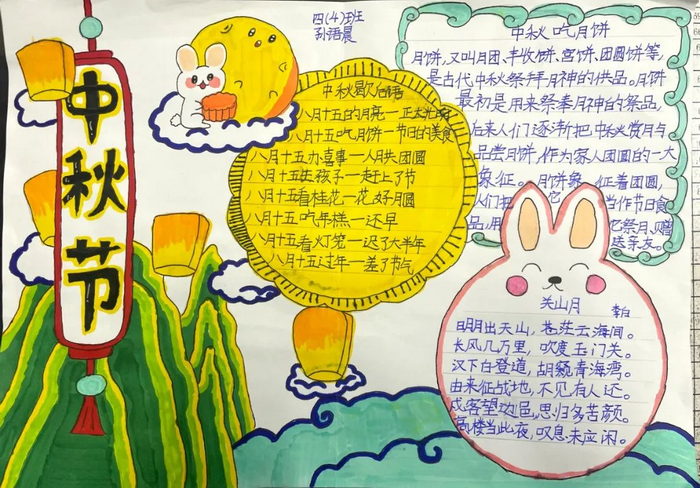 中秋节
四(4)班
孙语晨
中秋歇后语
八月十五的月亮—正大光明
八月十五吃月饼—节日的美食
八月十五办喜事—人月共团圆
八月十五生孩子—赶上了节
八月十五看桂花—花好月圆
八月十五吃年糕—还早
八月十五看灯笼—迟了大半年
八月十五过年—差了节气
中秋吃月饼
月饼,又叫月团、丰收饼、宫饼、团圆饼等,
是古代中秋祭拜月神的供品。月饼
最初是用来祭奉月神的祭品,
后来人们逐渐把中秋赏月与
品尝月饼,作为家人团圆的一大
象征。月饼象征着团圆,
人们把它当作节日食
品,用它祭月、赠
送亲友。
关山月
李白
明月出天山,苍茫云海间。
长风几万里,吹度玉门关。
汉下白登道,胡窥青海湾。
由来征战地,不见有人还。
戍客望边邑,思归多苦颜。
高楼当此夜,叹息未应闲。